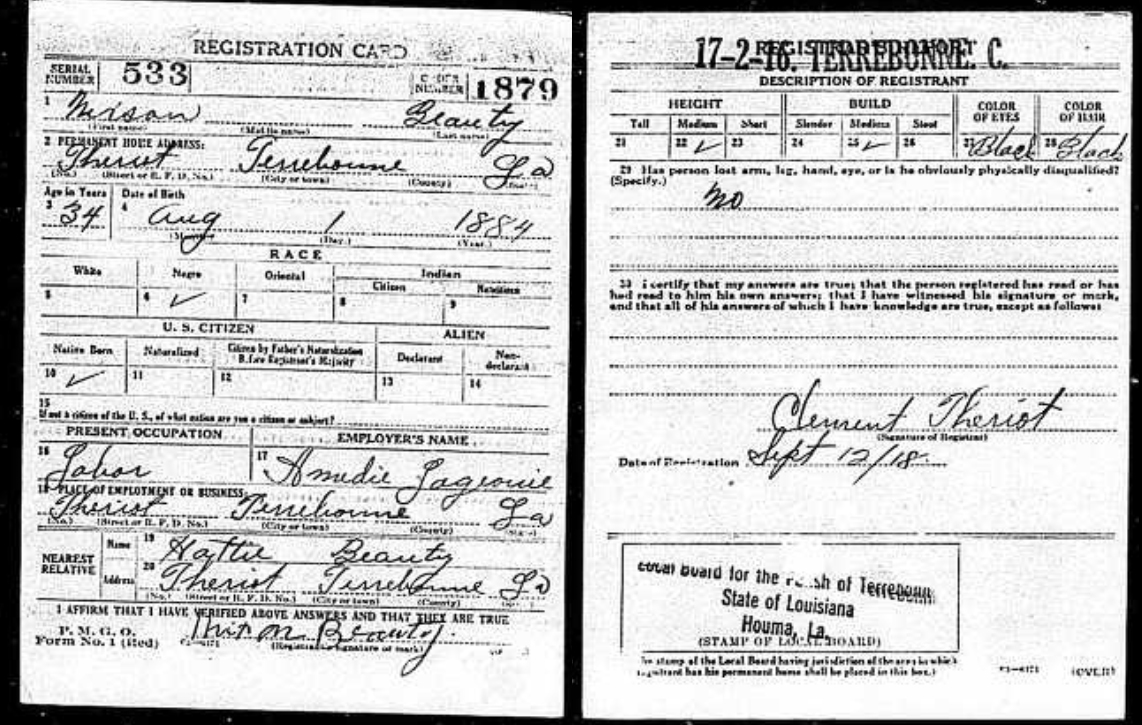 REGISTRATION CARD
SERIAL NUMBER 533 ORDER NUMBER 1879
1 Beauty
(First name) (Middle name) (Last name)
2 PERMANENT HOME ADDRESS:
Theriot Terrebonne La
(No.) (Street or R. F. D. No.) (City or town) (County) (State)
Age in Years Date of Birth
3 34 4 Aug 1 1884
(Month) (Day.) (Year.)
RACE
White Negro Oriental Indian
Citizen
5 6 ✓ 7 8 9
U. S. CITIZEN ALIEN
Native Born Naturalized Citizen by Father's Naturalization Before Registrant's Majority Declarant Non-declarant
10 ✓ 11 12 13 14
15
If not a citizen of the U. S., of what nation are you a citizen or subject?
PRESENT OCCUPATION EMPLOYER'S NAME
16 Labor 17 Amedie
18 PLACE OF EMPLOYMENT OR BUSINESS:
Theriot Terrebonne La
(No.) (Street or R. F. D. No.) (City or town) (County) (State)
NEAREST RELATIVE Name 19 Hattie Beauty
Address 20 Theriot Terrebonne La
(No.) (Street or R. F. D. No.) (City or town) (County)
I AFFIRM THAT I HAVE VERIFIED ABOVE ANSWERS AND THAT THEY ARE TRUE
P. M. G. O.
Form No. 1 (Red) Beauty
(Registrant's signature or mark)
17-2-16. TERREBONNE. C.
REGISTRAR'S REPORT
DESCRIPTION OF REGISTRANT
HEIGHT BUILD COLOR OF EYES COLOR OF HAIR
Tall Medium Short Slender Medium Stout
21 22 ✓ 23 24 25 ✓ 26 27 Black 28 Black
29 Has person lost arm, leg, hand, eye, or is he obviously physically disqualified?
(Specify.)
no
30 I certify that my answers are true; that the person registered has read or has
had read to him his own answers; that I have witnessed his signature or mark,
and that all of his answers of which I have knowledge are true, except as follows:
Clement Theriot
(Signature of Registrant)
Date of Registration Sept 12/18
Local Board for the Parish of Terrebonne
State of Louisiana
Houma, La.
(STAMP OF LOCAL BOARD)
The stamp of the Local Board having jurisdiction of the area in which
registrant has his permanent home shall be placed in this box.)
(OVER)